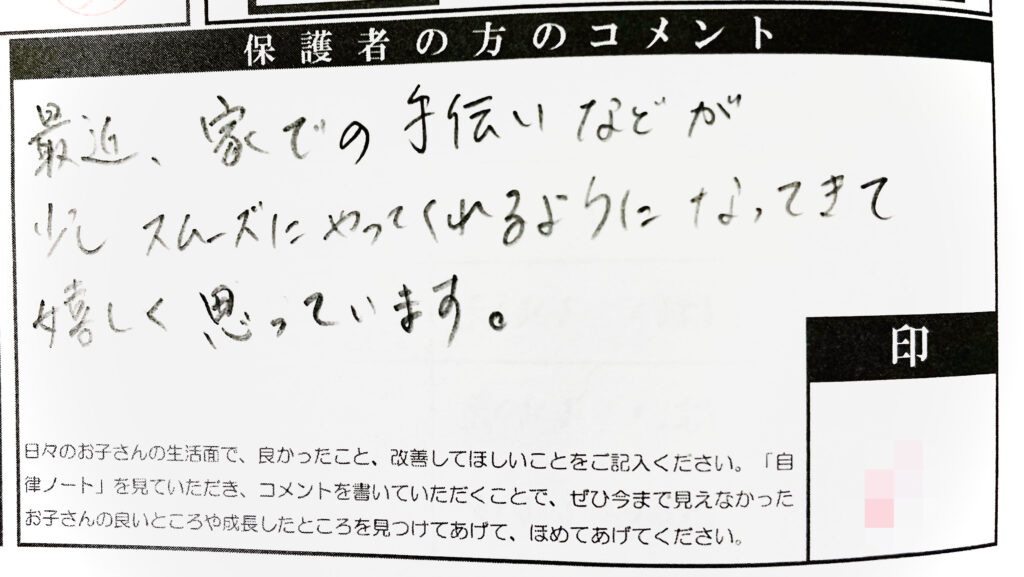 保護者の方のコメント
最近、家での手伝いなどが
少しスムーズにやってくれるようになってきて
嬉しく思っています。
印
日々のお子さんの生活面で、良かったこと、改善してほしいことをご記入ください。「自
律ノート」を見ていただき、コメントを書いていただくことで、ぜひ今まで見えなかった
お子さんの良いところや成長したところを見つけてあげて、ほめてあげてください。